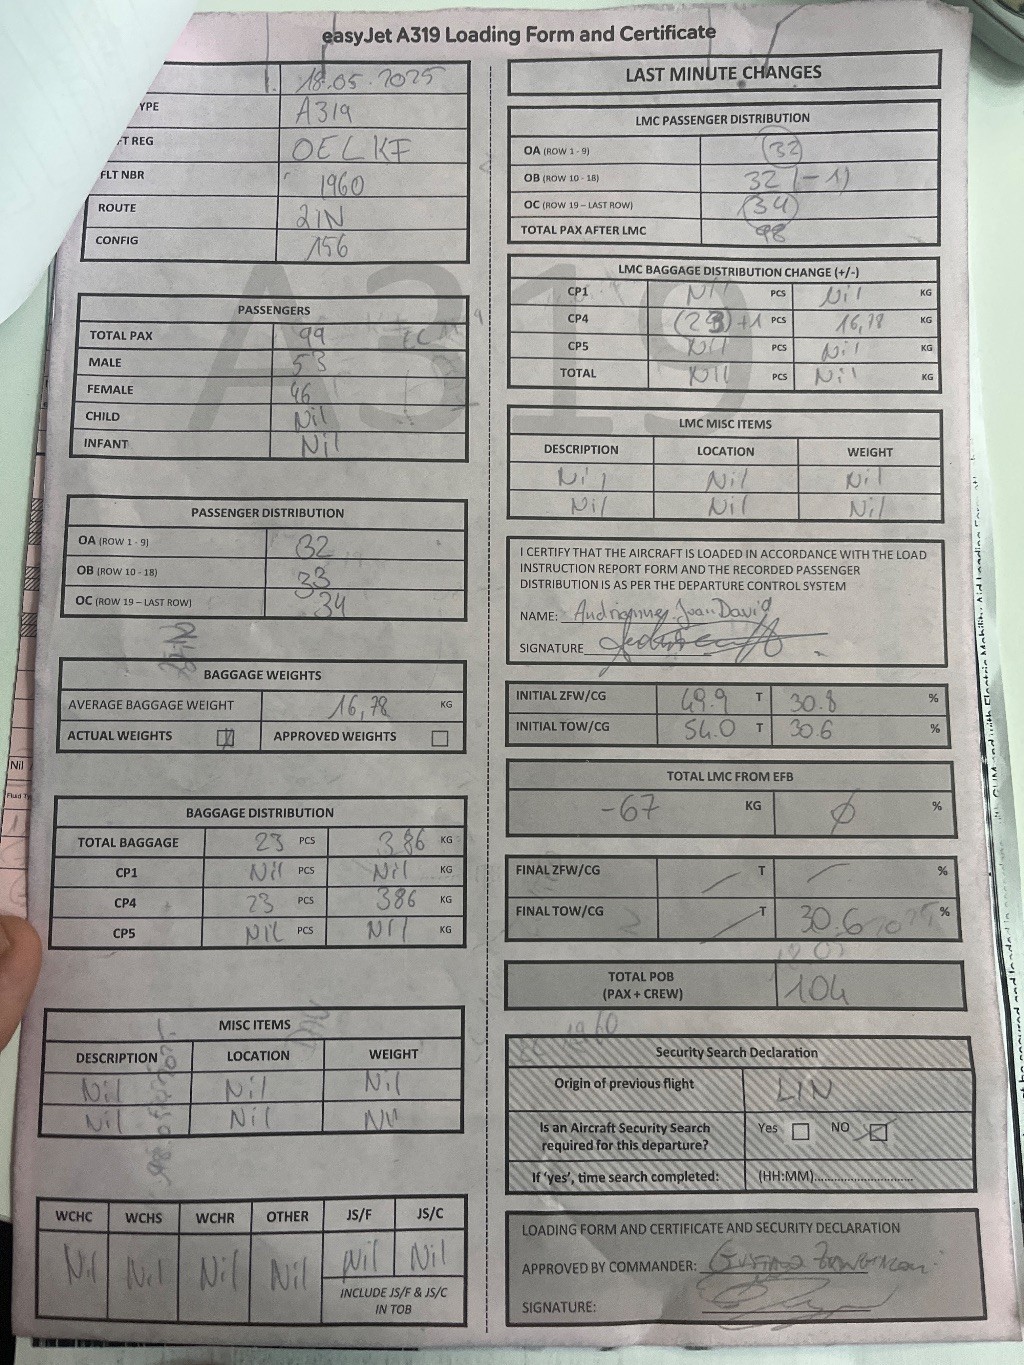 easyJet A319 Loading Form and Certificate
18.05.2025
YPE A319
T REG OELKF
FLT NBR 1960
ROUTE LIN
CONFIG 156
PASSENGERS
TOTAL PAX 99
MALE 53
FEMALE 46
CHILD Nil
INFANT Nil
PASSENGER DISTRIBUTION
OA (ROW 1 - 9) 32
OB (ROW 10 - 18) 33
OC (ROW 19 – LAST ROW) 34
BAGGAGE WEIGHTS
AVERAGE BAGGAGE WEIGHT 16,78 KG
ACTUAL WEIGHTS APPROVED WEIGHTS
BAGGAGE DISTRIBUTION
TOTAL BAGGAGE 23 PCS 386 KG
CP1 Nil PCS Nil KG
CP4 23 PCS 386 KG
CP5 NIL PCS Nil KG
MISC ITEMS
DESCRIPTION LOCATION WEIGHT
Nil Nil Nil
Nil Nil Nil
WCHC WCHS WCHR OTHER JS/F JS/C
Nil Nil Nil Nil Nil Nil
INCLUDE JS/F & JS/C
IN TOB
LAST MINUTE CHANGES
LMC PASSENGER DISTRIBUTION
OA (ROW 1 - 9) (32)
OB (ROW 10 - 18) 32 (-1)
OC (ROW 19 – LAST ROW) (34)
TOTAL PAX AFTER LMC 98
LMC BAGGAGE DISTRIBUTION CHANGE (+/-)
CP1 Nil PCS Nil KG
CP4 (23)+1 PCS 16,78 KG
CP5 Nil PCS Nil KG
TOTAL NIL PCS Nil KG
LMC MISC ITEMS
DESCRIPTION LOCATION WEIGHT
Nil Nil Nil
Nil Nil Nil
I CERTIFY THAT THE AIRCRAFT IS LOADED IN ACCORDANCE WITH THE LOAD
INSTRUCTION REPORT FORM AND THE RECORDED PASSENGER
DISTRIBUTION IS AS PER THE DEPARTURE CONTROL SYSTEM
NAME:
SIGNATURE
INITIAL ZFW/CG 49.9 T 30.8 %
INITIAL TOW/CG 54.0 T 30.6 %
TOTAL LMC FROM EFB
-67 KG ϕ %
FINAL ZFW/CG T %
FINAL TOW/CG T 30.6 %
TOTAL POB
(PAX + CREW) 104
1960
Security Search Declaration
Origin of previous flight LIN
Is an Aircraft Security Search
required for this departure? Yes NO
If 'yes', time search completed: (HH:MM)..............................
LOADING FORM AND CERTIFICATE AND SECURITY DECLARATION
APPROVED BY COMMANDER:
SIGNATURE:
Nil